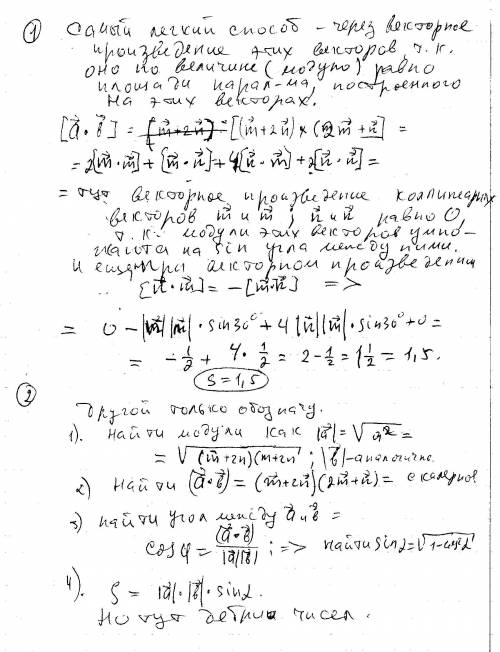 ① Самый легкий способ - через векторное
произведение этих векторов, т.к.
оно по величине (модулю) равно
площади парал-ма, построенного
на этих векторах.
[a⃗·b⃗] = [(m⃗+2n⃗) × (2m⃗+n⃗)] =
= 2[m⃗·m⃗] + [m⃗·n⃗] + 4[n⃗·m⃗] + 2[n⃗·n⃗] =
= тут векторное произведение коллинеарных
векторов m и m; n и n равно 0,
т.к. модули этих векторов умно-
жаются на sin угла между ними.
И еще при векторном произведении
[n⃗·m⃗] = -[m⃗·n⃗] =>
= 0 - |m⃗||n⃗|·sin30° + 4|n⃗||m⃗|·sin30° + 0 =
= -1/2 + 4·1/2 = 2 - 1/2 = 1 1/2 = 1,5.
S = 1,5
② Другой только обозначу.
1). Найти модули как |a⃗| = √a⃗² =
= √(m⃗+2n)(m+2n ; |b⃗| - аналогично
2) Найти (a⃗·b⃗) = (m⃗+2n⃗)(2m⃗+n⃗) = скалярное
3) найти угол между a⃗ и b⃗ =
cosφ = (a⃗·b⃗)/|a⃗||b⃗| ; => найти sinα = √1-cos²α
4). S = |a⃗|·|b⃗|·sinα.
Но тут дебри чисел.